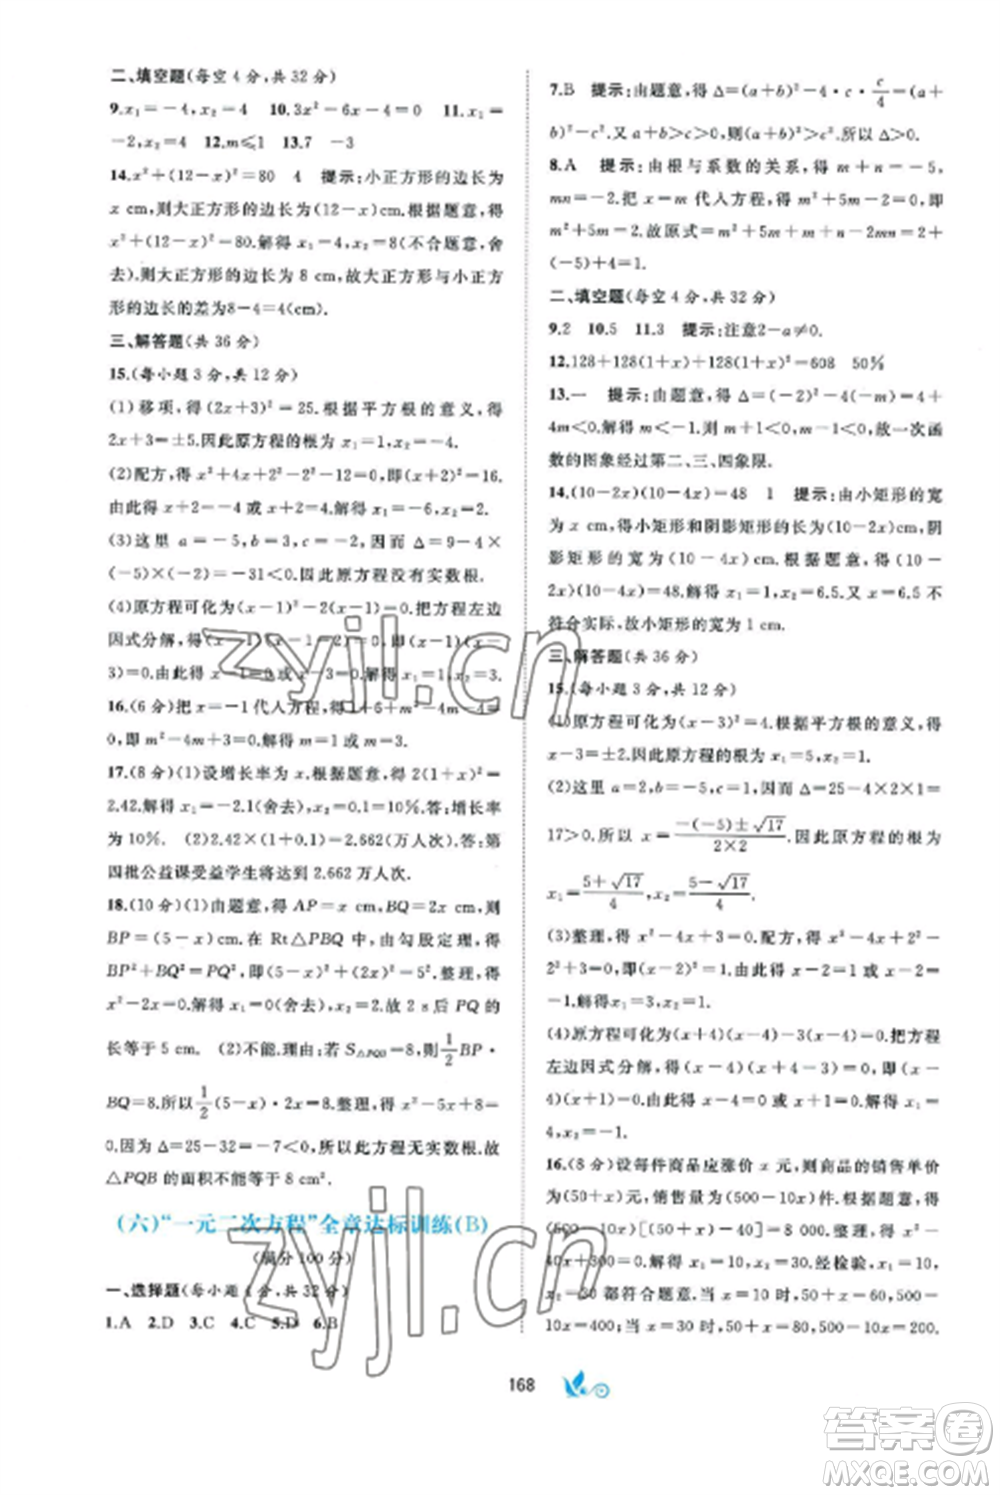 二、填空题(每空 4 分,共 32 分)
9.x₁=-4,x₂=4 10.3x²-6x-4=0 11.x₁=
-2,x₂=4 12.m≤1 13.7 -3
14.x²+(12-x)²=80 4 提示:小正方形的边长为
x cm,则大正方形的边长为(12-x)cm.根据题意,得
x²+(12-x)²=80.解得 x₁=4,x₂=8(不合题意,舍
去).则大正方形的边长为 8 cm,故大正方形与小正方
形的边长的差为8-4=4(cm).
三、解答题(共 36 分)
15.(每小题 3 分,共 12 分)
(1)移项,得(2x+3)²=25.根据平方根的意义,得
2x+3=±5.因此原方程的根为 x₁=1,x₂=-4.
(2)配方,得 x²+4x+2²-2²-12=0,即(x+2)²=16,
由此得 x+2=-4 或 x+2=4.解得x₁=-6,x₂=2.
(3)这里 a=-5,b=3,c=-2.因而 Δ=9-4×
(-5)×(-2)=-31<0.因此原方程没有实数根.
(4)原方程可化为(x-1)²-2(x-1)=0.把方程左边
因式分解,得(x-1)(x-1-2)=0,即(x-1)(x-3)=
0.由此得 x-1=0 或 x-3=0.解得x₁=1,x₂=3.
16.(6 分)把 x=-1代入方程,得1+6+m²-4m-4=
0,即 m²-4m+3=0.解得 m₁=1,m₂=3.
17.(8分)(1)设增长率为 x.根据题意,得 2(1+x)²=
2.42.解得 x₁=-2.1(舍去),x₂=0.1=10%.答:增长率
为 10%. (2)2.42×(1+0.1)=2.662(万人次).答:第
四批公益课受益学生将达到 2.662 万人次.
18.(10 分)(1)由题意,得 AP=x cm,BQ=2x cm,则
BP=(5-x) cm.在 Rt△PBQ 中,由勾股定理,得
BP²+BQ²=PQ²,即(5-x)²+(2x)²=25.整理,得
x²-2x=0.解得 x₁=0(舍去),x₂=2.故 2 s后 PQ的
长等于 5 cm. (2)不能.理由:若 S△PQB=8,则1/2BP·
BQ=8.所以1/2(5-x)·2x=8.整理,得 x²-5x+8=
0.Δ=25-32=-7<0,所以此方程无实数根.故
△PQB 的面积不能等于 8 cm².
(六)“一元二次方程”全章达标训练(B)
(满分 100 分)
一、选择题(每小题 4 分,共 32 分)
1.A 2.D 3.C 4.C 5.D 6.B
7.B 提示:由题意,得 Δ=(a+b)²-4·c·c/4=(a+
b)²-c².又 a+b>c>0,则(a+b)²>c².所以 Δ>0.
8.A 提示:由根与系数的关系,得 m+n=-5,
mn=-2.把 x=m 代入方程,得 m²+5m-2=0,即
m²+5m=2.故原式=m²+5m+m+n-2=2+
(-5)+4=1.
二、填空题(每空4 分,共 32 分)
9.2 10.5 11.3 提示:注意2-a≠0.
12.128+128(1+x)+128(1+x)²=608 50%
13.一 提示:由题意,得 Δ=(-2)²-4(-m)=4+
4m<0.解得 m<-1.则 m+1<0,m-1<0,故一次函
数的图象经过第二、三、四象限.
14.(10-2x)(10-4x)=48 1 提示:由小矩形的宽
为 x cm,得小矩形和阴影矩形的长为(10-2x)cm,阴
影矩形的宽为(10-4x)cm.根据题意,得(10-
2x)(10-4x)=48.解得 x₁=1,x₂=6.5.又 x=6.5不
符合实际,故小矩形的宽为1 cm.
三、解答题(共 36 分)
15.(每小题 3 分,共 12 分)
(1)原方程可化为(x-3)²=4.根据平方根的意义,得
x-3=±2.因此原方程的根为 x₁=5,x₂=1.
(2)这里 a=2,b=-5,c=1.因而 Δ=25-4×2×1=
17>0.所以 x=(-(-5)±√17)/(2×2).因此原方程的根为
x₁=(5+√17)/4,x₂=(5-√17)/4.
(3)整理,得 x²-4x+3=0.配方,得 x²-4x+2²-
2²+3=0,即(x-2)²=1.由此得 x-2=1 或 x-2=
-1.解得x₁=3,x₂=1.
(4)原方程可化为(x+4)(x-4)-3(x-4)=0.把方程
左边因式分解,得(x-4)(x+4-3)=0,即(x-
4)(x+1)=0.由此得 x-4=0 或 x+1=0.解得x₁=
4,x₂=-1.
16.(8 分)设每件商品应涨价 x 元,则商品的销售单价
为(50+x)元,销售量为(500-10x)件.根据题意,得
(50+x)(500-10x)-40(500-10x)=8 000.整理,得
x²-40x+300=0.解得 x₁=10,x₂=30.经检验,x₁=10,
x₂=30 都符合题意.当 x=10 时,50+x=60,500-
10x=400;当x=30时,50+x=80,500-10x=200.
168
zyjl.cn
zyjl.cn
答案圈
MXQE.COM